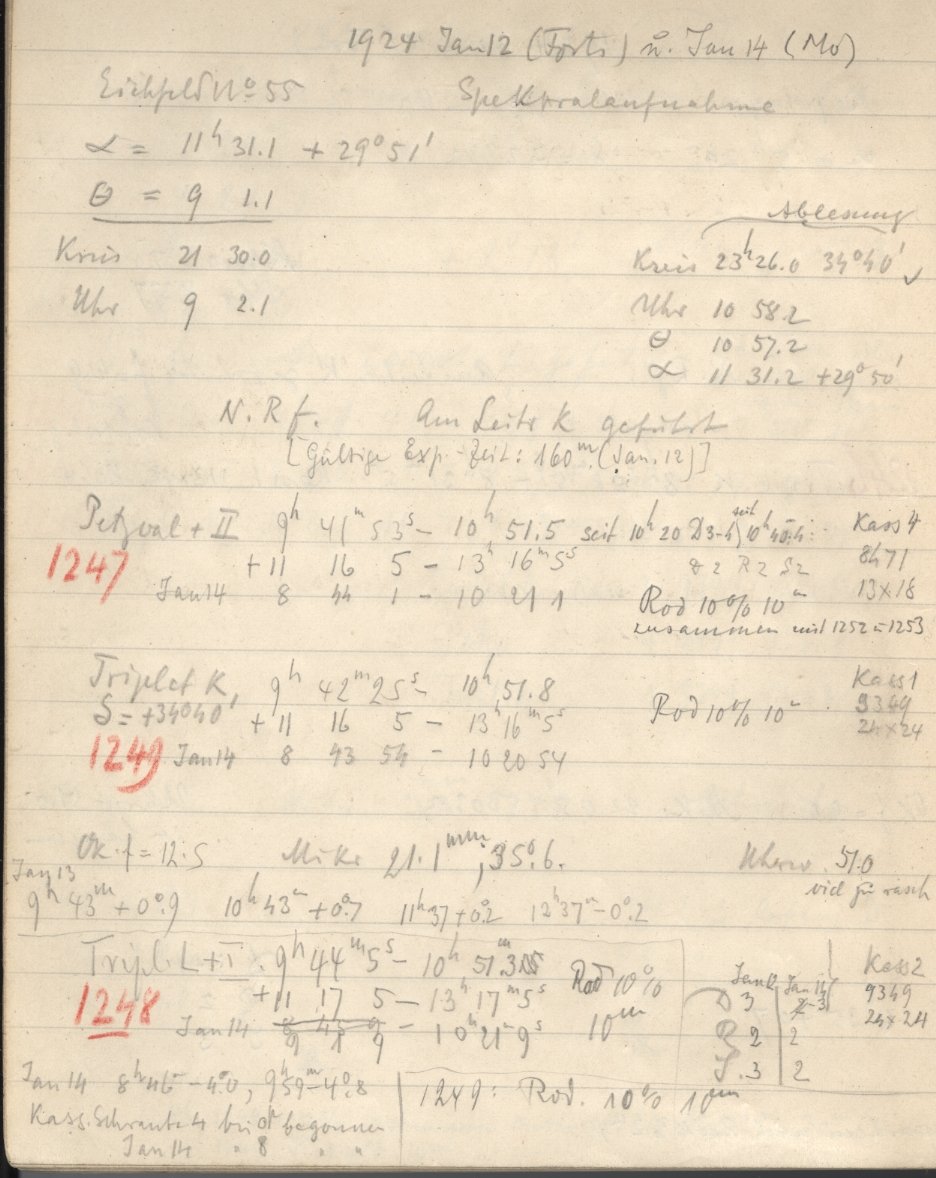 1924 Jan 12 (Forts.) u. Jan 14 (Mo)
Eichfeld No 55 Spektralaufnahme
α = 11h 31.1 + 29° 51'
θ = 9 1.1
Ablesung
Kreis 21 30.0 Kreis 23h 26.0 34° 40' ✓
Uhr 9 2.1 Uhr 10 58.2
θ 10 57.2
α 11 31.2 + 29° 50'
N. R f. Am Leitr K geführt
[Gültige Exp.-Zeit: 160m (Jan. 12)]
Petzval + II 9h 41m 53s – 10h 51.5 seit 10h 20 D3-4, seit 10h 40 Kass 4
1247 + 11 16 5 – 13h 16m 5s D 2 R 2 S 2 8471
Jan 14 8 44 1 – 10 21 1 Rod 10% 10m 13×18
zusammen mit 1252 u 1253
Triplet K, 9h 42m 25s – 10h 51.8 Kass 1
δ = +34° 40' + 11 16 5 – 13h 16m 5s Rod 10% 10m 9349
24×24
1249 Jan 14 8 43 54 – 10 20 54
Ok. f = 12.5 Mikr 21.1mm, 35°.6. Uhrw. 51.0
Jan 13 viel zu rasch
9h 43m + 0°.9 10h 43m + 0°.7 11h 37 + 0.2 12h 37m – 0°.2
Tripl. L + I. 9h 44m 5s – 10h 51m Rod 10% Jan 12 Jan 14 Kass 2
1248 + 11 17 5 – 13h 17m 5s 10m D 3 2-3 9349
24×24
Jan 14 9 – 10h 21m 9s R 2 2
S. 3 2
Jan 14 8h 46m – 4°.0, 9h 59m – 4°.8 1249: Rod. 10% 10m
Kass. Schraube 4 bei begonnen
Jan 14 " 8 " "